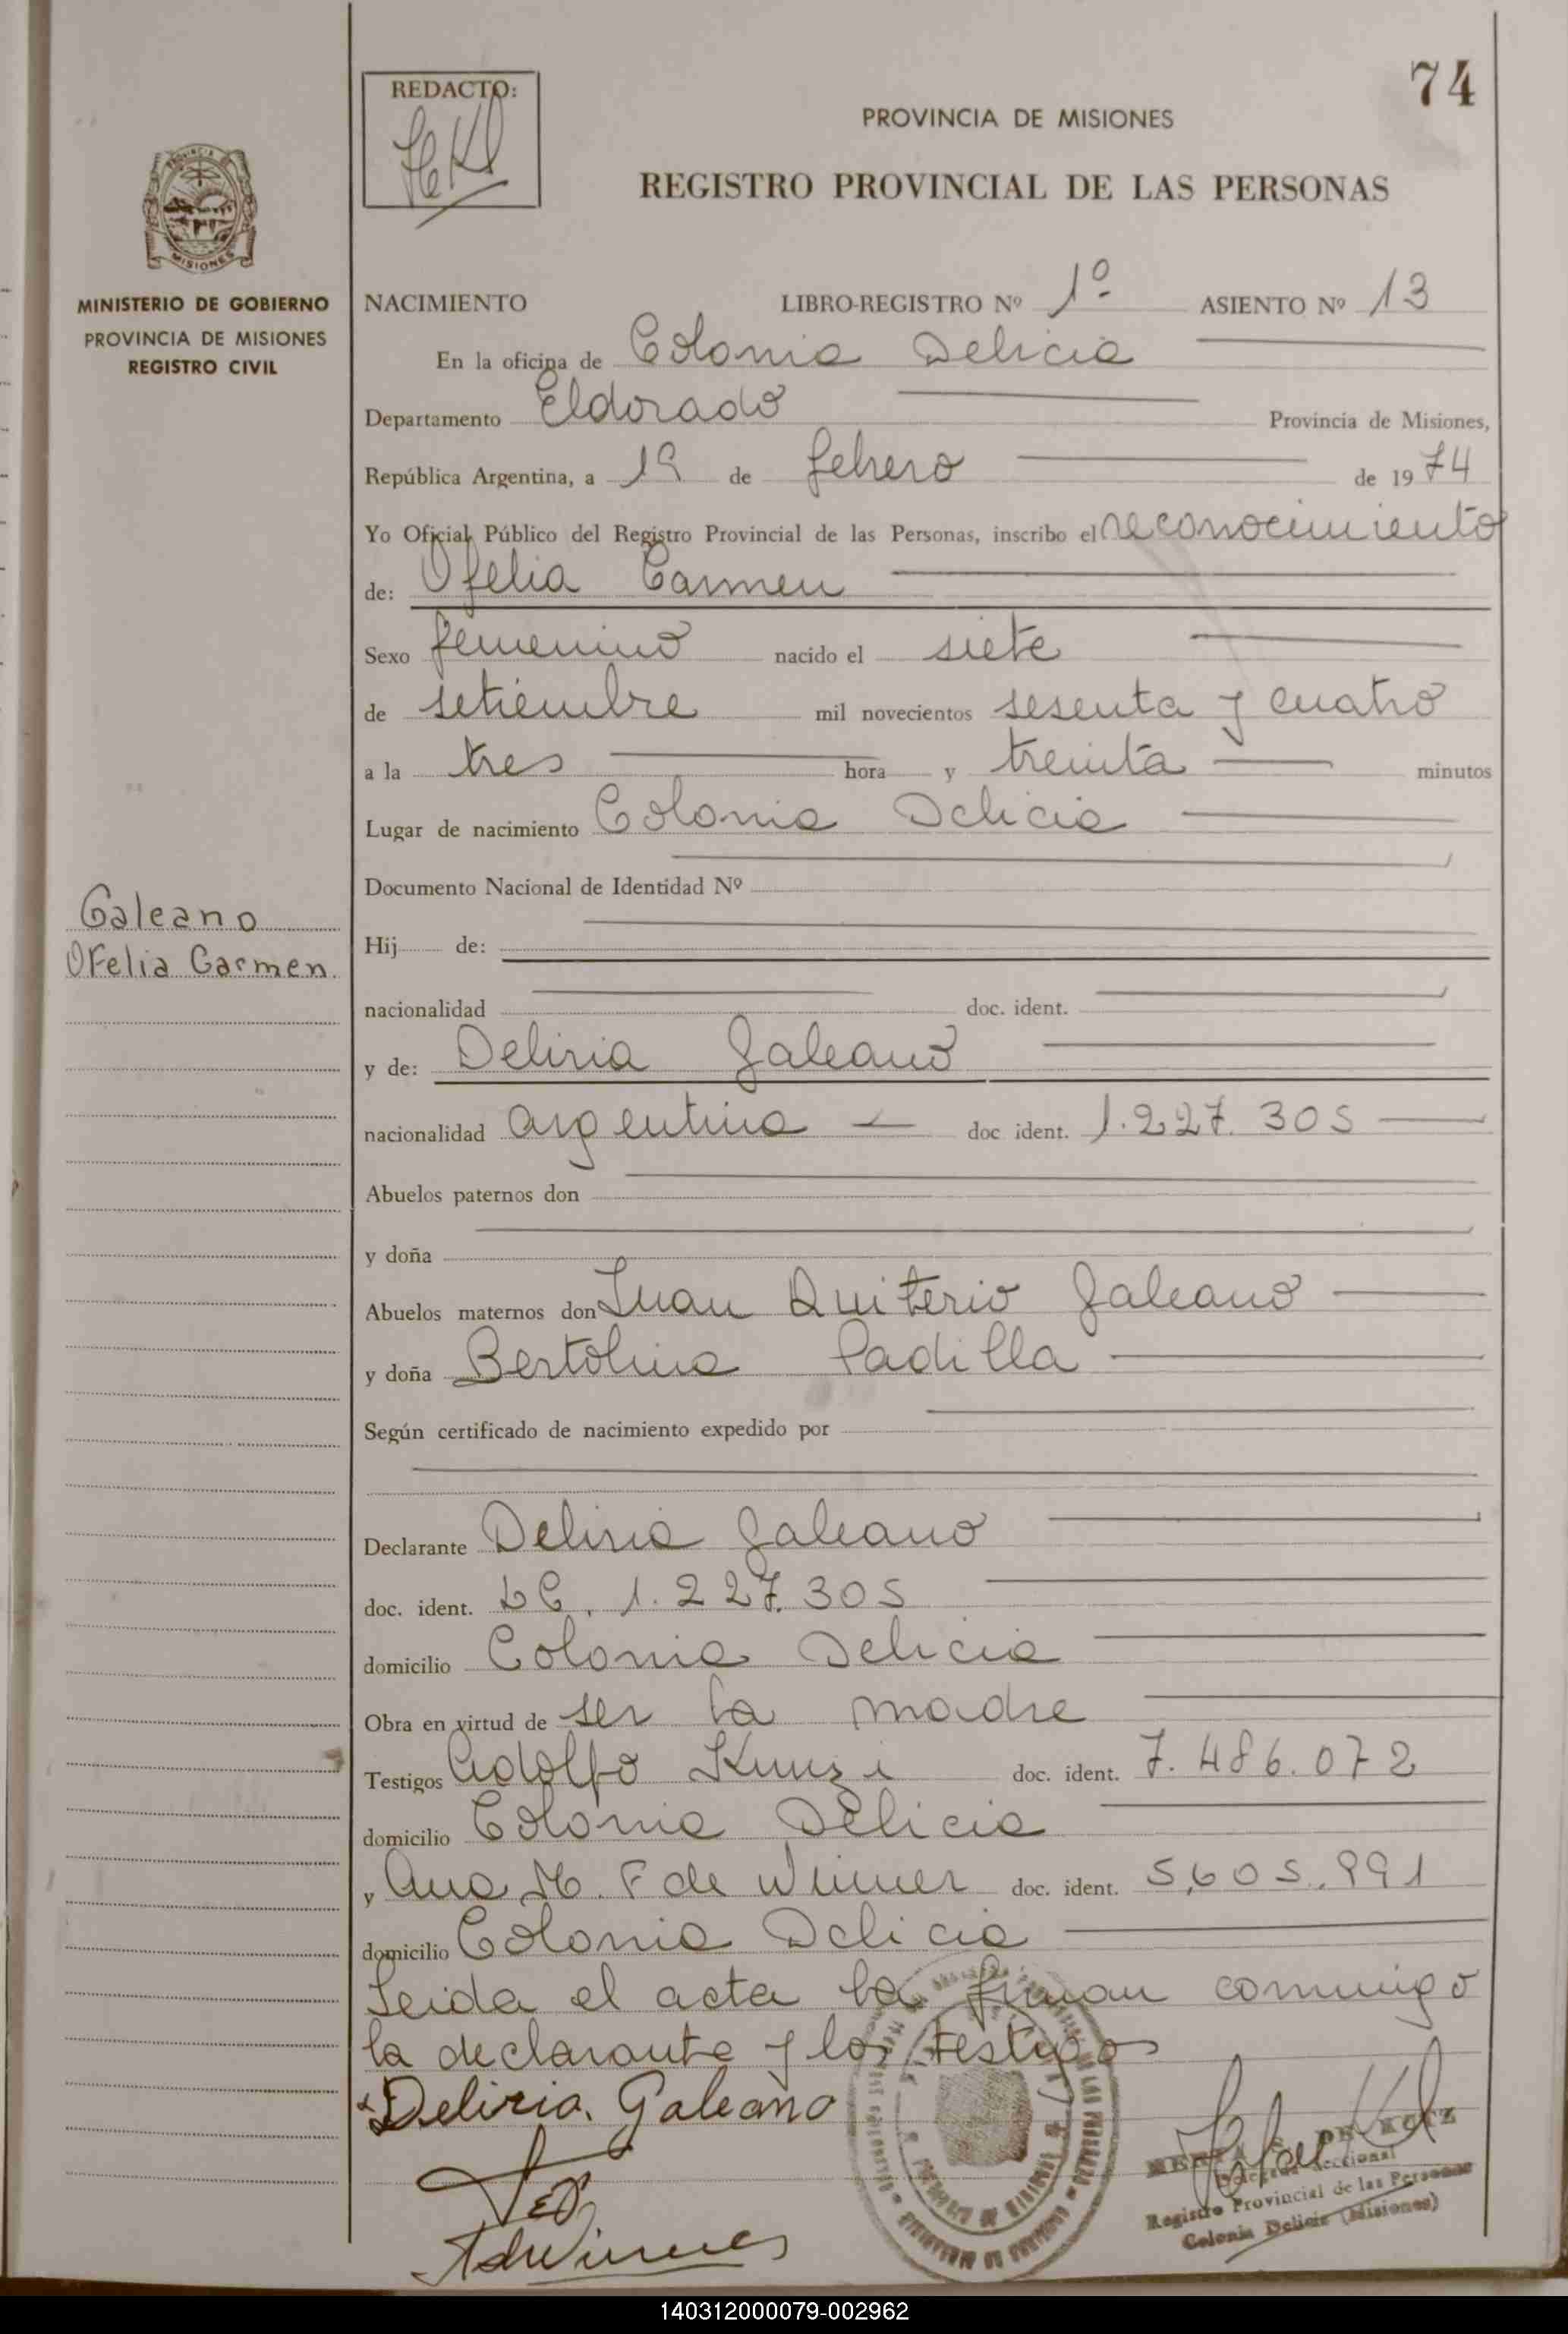 74
REDACTO:
PROVINCIA DE MISIONES
REGISTRO PROVINCIAL DE LAS PERSONAS
PROVINCIA DE
MISIONES
MINISTERIO DE GOBIERNO
PROVINCIA DE MISIONES
REGISTRO CIVIL
NACIMIENTO LIBRO-REGISTRO Nº 1º ASIENTO Nº 13
En la oficina de Colonia Delicia
Departamento Eldorado Provincia de Misiones,
República Argentina, a 19 de febrero de 1974
Yo Oficial Público del Registro Provincial de las Personas, inscribo el reconocimiento
de: Ofelia Carmen
Sexo femenino nacido el siete
de setiembre mil novecientos sesenta y cuatro
a la tres hora y treinta minutos
Lugar de nacimiento Colonia Delicia
Documento Nacional de Identidad Nº
Galeano
Ofelia Carmen
Hij de:
nacionalidad doc. ident.
y de: Deliria Galeano
nacionalidad argentina doc ident. 1.227.305
Abuelos paternos don
y doña
Abuelos maternos don Juan Quiterio Galeano
y doña Bertolina Padilla
Según certificado de nacimiento expedido por
Declarante Deliria Galeano
doc. ident. LC. 1.227.305
domicilio Colonia Delicia
Obra en virtud de ser la madre
Testigos Adolfo Kunzi doc. ident. 7.486.072
domicilio Colonia Delicia
y Ana M. F de Wimer doc. ident. 5,605.991
domicilio Colonia Delicia
Leida el acta la firman conmigo
la declarante y los testigos
Deliria. Galeano
Registro Provincial de las Personas
Colonia Delicia (Misiones)
140312000079-002962